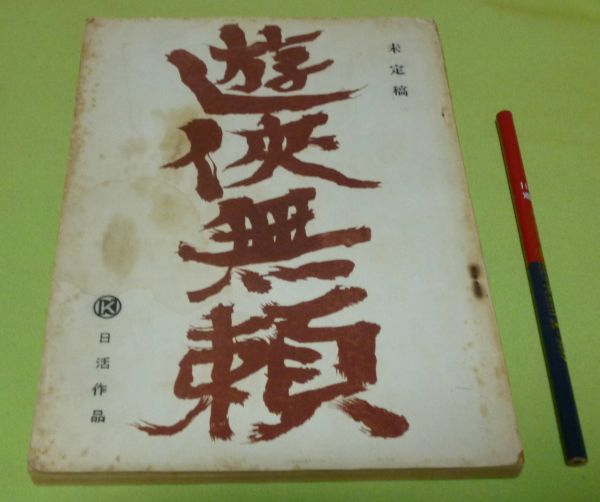 未定稿
遊侠無頼
K
日活作品